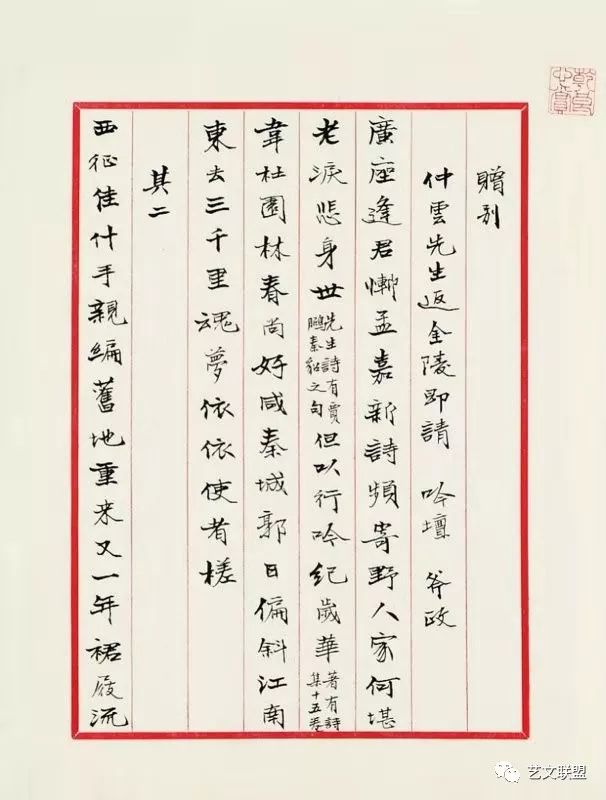 贈別
仲雲先生返金陵即請 吟壇 斧政
廣座逢君慚孟嘉新詩頻寄野人家何堪
老淚悲身世先生詩有賈鵬秦貂之句但以行吟紀歲華著有詩集十五卷
韋杜園林春尚好咸秦城郭日偏斜江南
東去三千里魂夢依依使者槎
其二
西征佳什手親編舊地重来又一年裙屐流
艺文联盟